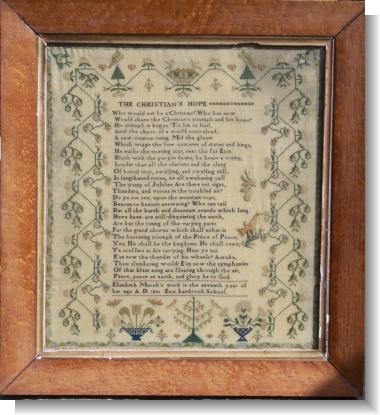 THE CHRISTIAN'S HOPE
Who would not be a Christian? Who but now
Would share the Christian's triumph and his hope?
His triumph is begun. 'Tis his to hail,
Amid the chaos of a world convulsed,
A new creation rising. Mid the gloom
Which wraps the low concerns of states and kings,
He marks the morning star, sees the far East
Blush with the purple dawn, he hears a trump,
Louder than all the clarions and the clang
Of horrid war, swelling, and swelling still,
In lengthened notes, its all awakening call
The trump of Jubilee. Are there not signs,
Thunders, and voices in the troubled air?
Do ye not see, upon the mountain tops,
Beacon to beacon answering? Who can tell
But all the harsh and dissonant sounds which long
Have been are still disquieting the earth,
Are but the tuning of the varying parts
For the grand chorus which shall usher in
The hastening triumph of the Prince of Peace,
Yes, His shall be the kingdoms. He shall come,
Ye scoffers at his tarrying. Hear ye not
E'en now the thunder of his wheels? Awake,
Thou slumbering world! E'en now the symphonies
Of that blest song are floating through the air,
Peace, peace on earth, and glory be to God.
Elizabeth March's work in the seventh year of
her age A D East Lambrook School.